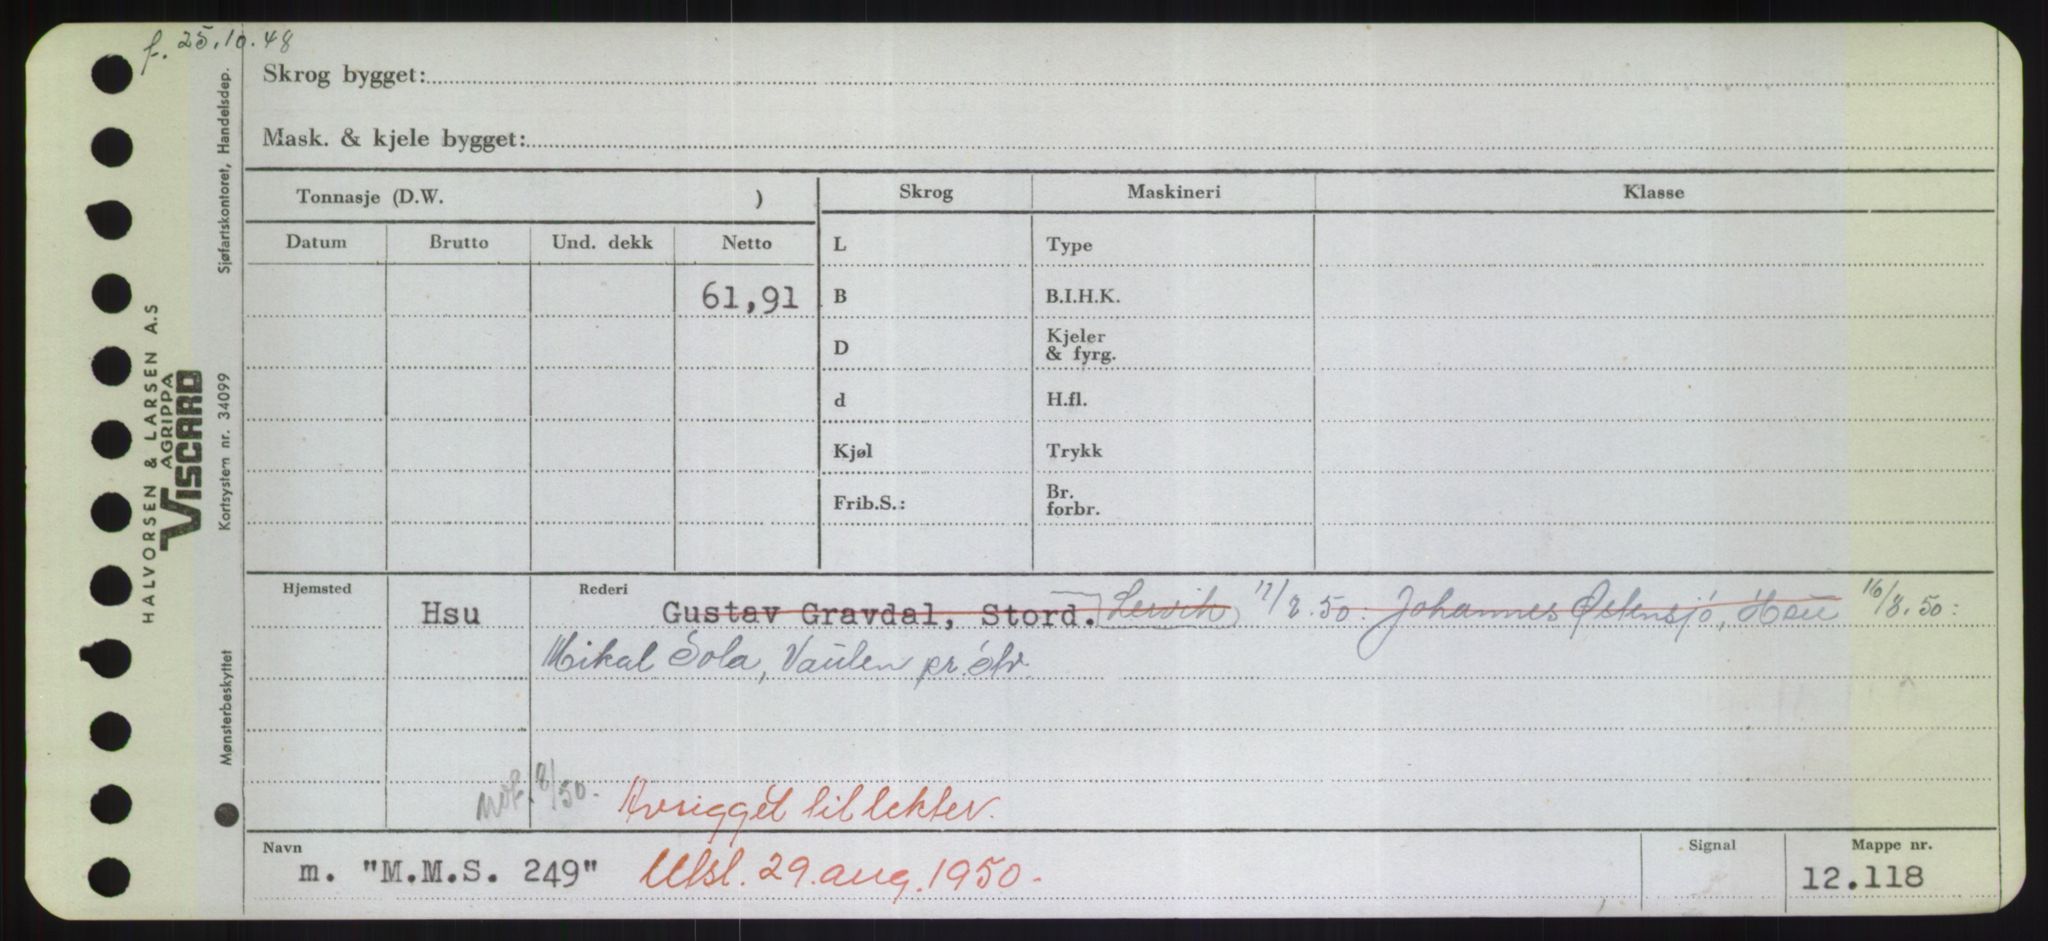 f. 25.10.48
Skrog bygget:
Mask. & kjele bygget:
Tonnasje (D.W. )
Skrog Maskineri Klasse
Datum Brutto Und. dekk Netto
L Type
61,91
B B.I.H.K.
D Kjeler & fyrg.
d H.fl.
Kjøl Trykk
Frib.S.: Br. forbr.
Hjemsted Rederi
Hsu Gustav Gravdal, Stord. Lervik 17/8.50: Johannes Østensjø, Hsu 16/8.50:
Mikal Sola, Vaulen pr. Stv.
8/50. Avrigget til lekter.
Navn Signal Mappe nr.
m. "M.M.S. 249" Utsl. 29. aug. 1950. 12.118
HALVORSEN & LARSEN A.S
AGRIPPA
VISCARD
Mønsterbeskyttet Kortsystem nr. 34099 Sjøfartskontoret, Handelsdep.